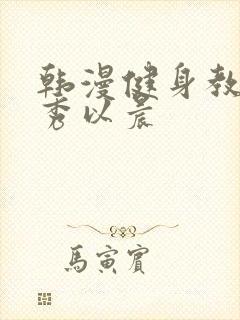 韩漫健身教
秀以晨
馬寅賓